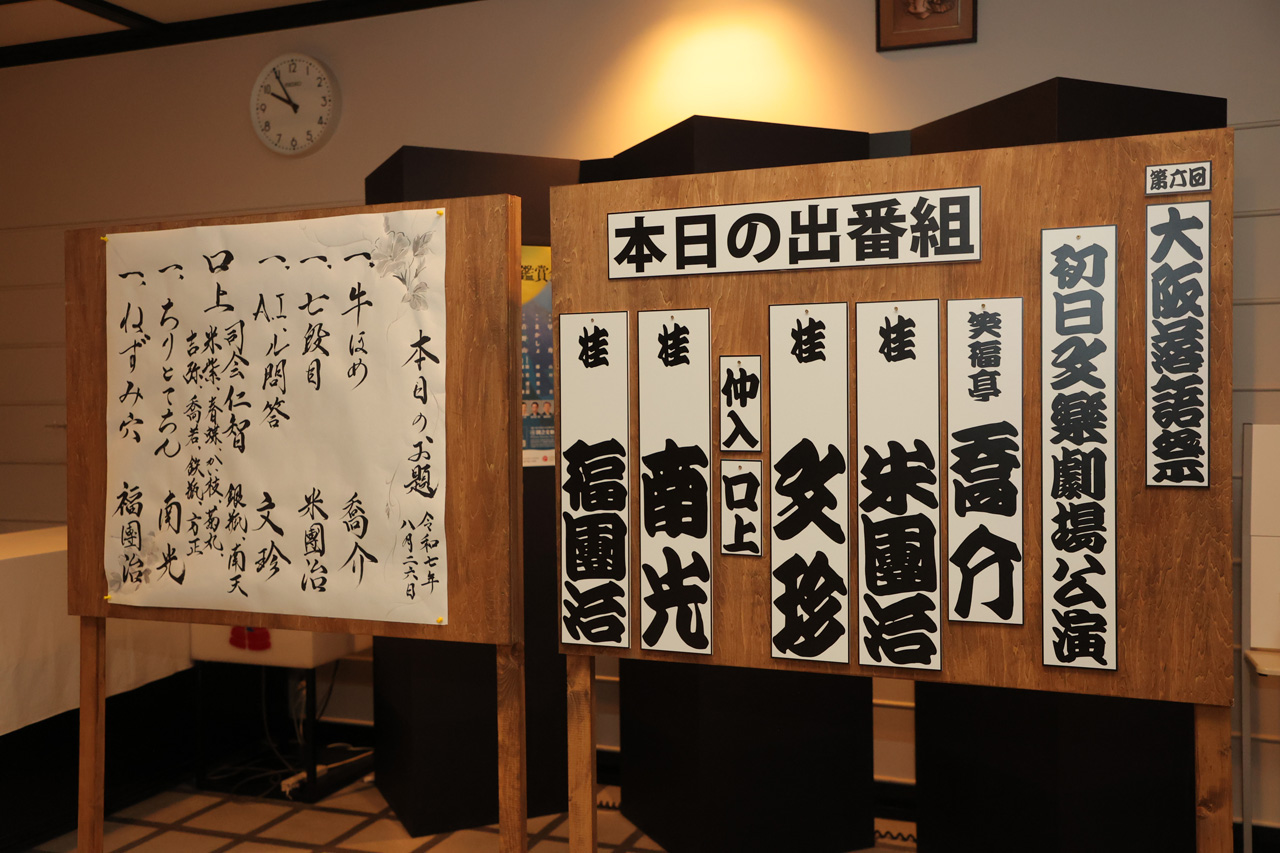 本日のお題
令和七年
八月二六日
一、牛ほめ 喬介
一、七段目 米團治
一、A.I.ル問答 文珍
口上 司会 仁智 銀瓶、南天
米紫、春蝶、かい枝、菊丸
吉弥、喬若、鉄瓶、方正
一、ちりとてちん 南光
一、ねずみ穴 福團治
鑑賞
本日の出番組
第六回
大阪落語祭
初日文樂劇場公演
笑福亭 喬介
桂 米團治
桂 文珍
仲入
口上
桂 南光
桂 福團治